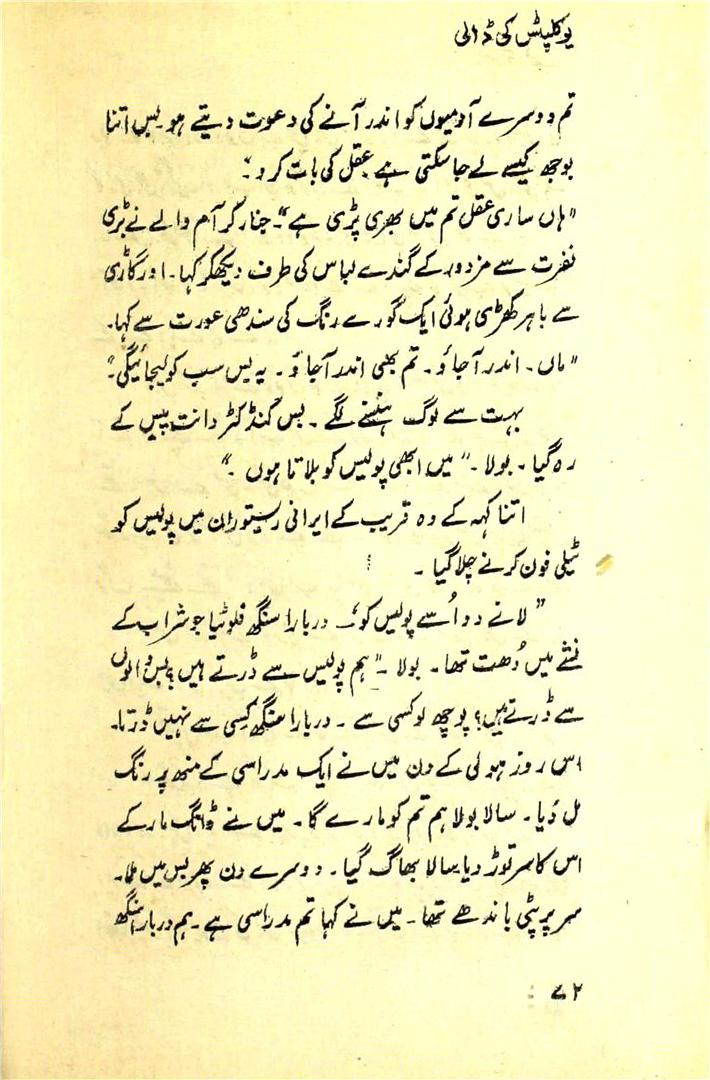 یوکلپٹس کی ڈالی
تم دوسرے آدمیوں کو اندر آنے کی دعوت دیتے ہو۔ بس اتنا
بوجھ کیسے لے جا سکتی ہے عقل کی بات کرو۔"
"ہاں ساری عقل تم میں بھری پڑی ہے"۔ جنارگرآم والے نے بڑی
نفرت سے مزدور کے گندے لباس کی طرف دیکھکر کہا۔ اور گاڑی
سے باہر کھڑی ہوئی ایک گورے رنگ کی سندھی عورت سے کہا۔
"ماں۔ اندر آجاؤ۔ تم بھی اندر آجاؤ۔ یہ بس سب کو لیجائیگی۔"
بہت سے لوگ ہنسنے لگے۔ بس کنڈکٹر دانت پیس کے
رہ گیا۔ بولا۔ "میں ابھی پولیس کو بلاتا ہوں۔"
اتنا کہہ کے وہ قریب کے ایرانی ریستوران میں پولیس کو
ٹیلی فون کرنے چلا گیا۔
"لانے دو اُسے پولیس کو"۔ دربارا سنگھ فلوٹیا جو شراب کے
نشے میں دُھت تھا۔ بولا۔ "ہم پولیس سے ڈرتے ہیں؟ بس والوں
سے ڈرتے ہیں؟ پوچھ لو کسی سے۔ دربارا سنگھ کِسی سے نہیں ڈرتا۔
اس روز ہولی کے دن میں نے ایک مدراسی کے منھ پر رنگ
مل دیا۔ سالا بولا ہم تم کو مارے گا۔ میں نے ڈانگ مار کے
اس کا سر توڑ دیا سالا بھاگ گیا۔ دوسرے دن پھر بس میں ملا۔
سر پر پٹی باندھے تھا۔ میں نے کہا تم مدراسی ہے۔ ہم دربارا سنگھ
۷۲